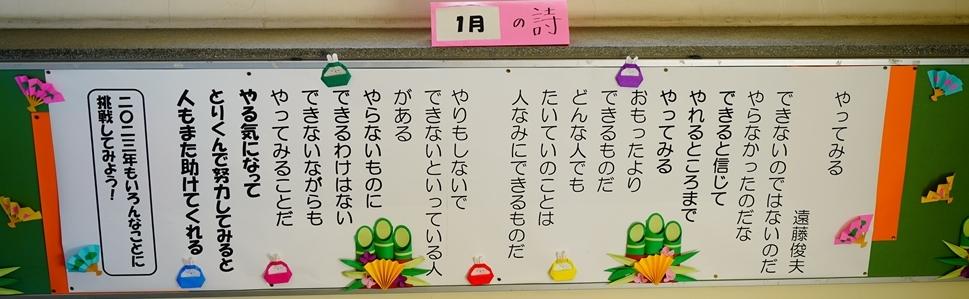 1月の詩
やってみる
遠藤俊夫
できないのではないのだ
やらなかったのだな
できると信じて
やれるところまで
やってみる
おもったより
できるものだ
どんな人でも
たいていのことは
人なみにできるものだ
やりもしないで
できないといっている人
がある
やらないものに
できるわけはない
できないながらも
やってみることだ
やる気になって
とりくんで努力してみると
人もまた助けてくれる
二〇二三年もいろんなことに
挑戦してみよう！